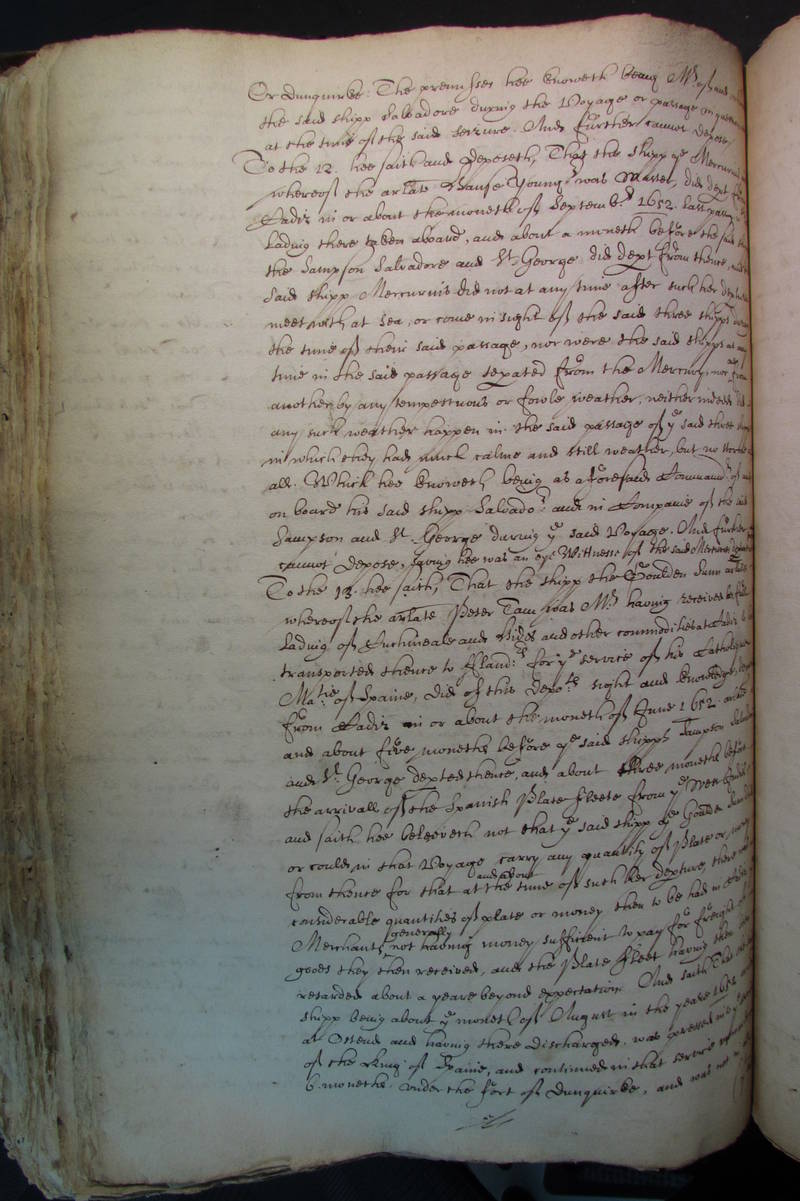 Or Dunquirke. The premisses hee knoweth being Mr. of
the said shipp Salvadore during the Voyage or passage in question
at the time of the said seizure. And further cannot depose.
To the 12. hee saith and deposeth, That the shipp ye Mercurius
whereof the arlate Hanse Young was Master, did dept
Cadiz in or about the moneth of Septembr. 1652. last past
lading there taken aboard, and about a moneth before the said
the Sampson Salvadore and St. George did dept from thence
said shipp Mercurius did not at any time after such her
meet with at sea, or come in sight of the said three shipps
the time of their said passage, nor were the said shipps at any
time in the said passage sepated from the Mercury, nor one from
another by any tempestuous or fowle weather, neither indeed did
any such weather happen in the said passage of ye said three
in which they had much calme and still weather, but no
all. Which hee knoweth being as aforesaid Command.
on board his said shipp Salvador. and in Companie of the said
Sampson and St. George during ye said Voyage. And further
cannot depose, saving hee was an eye Wittnesse of the said Mercurius
To the 13. hee saith, That the shipp the Goulden Sunn arlate
whereof the arlate Peter Tam was Mr. having received
lading of Cuchineale and Hides and other commodities at Cadiz
transported thence to Fland.rs for ye service of his Catholique
Ma.tie of Spaine, did of this depo.ts sight and knowledge
from Cadiz in or about the moneth of June 1652.
and about five moneths before ye said shipps Sampson Salvador
and St. George depted thence, and about three moneths before
the arrivall of the Spanish Plate fleete from ye West Indies
and saith hee beleeveth not that ye said shipp ye Goulden Sunn
or could in that Voyage carry any quantity of Plate or money
from thence for that at and about the time of such her depture, there
considerable quantities of plate or money then to be had in Cadiz
Merchants generally not having money sufficient to pay for freight of
goods they then received, and the Plate fleet having then
retarded about a yeare beyond expectation. And saith That
shipp being about ye moneth of August in the yeare 1652
at Ostend and having there discharged, was pressed into ye
of the King of Spaine, and continued in that service
6. moneths under the fort of Dunquirke, and was not